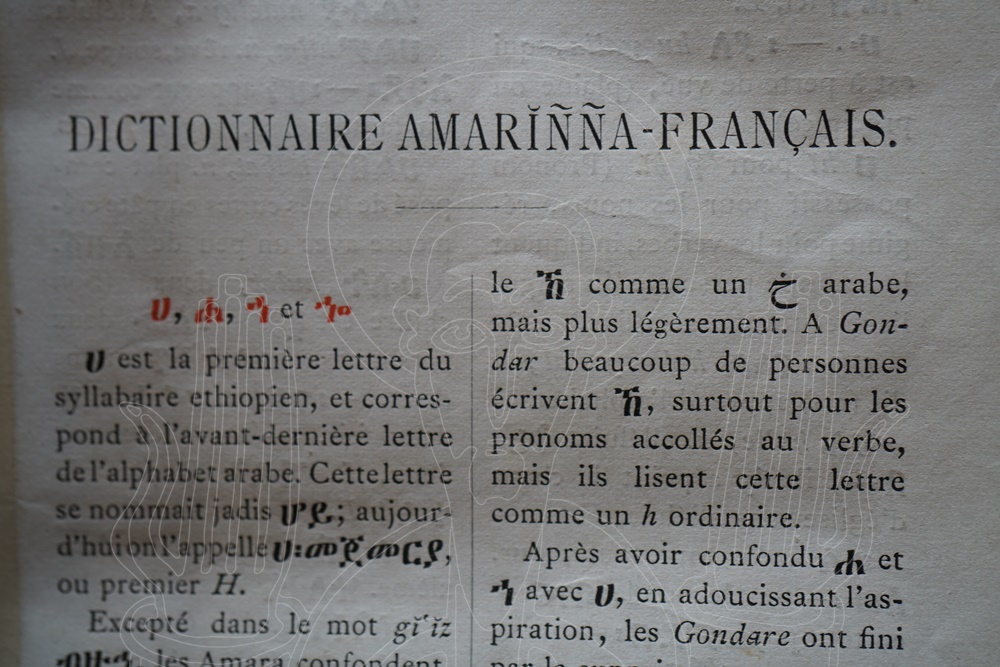 DICTIONNAIRE AMARĬÑÑA-FRANÇAIS.
ሀ, ሐ, ኀ et ኈ
ሀ est la première lettre du
syllabaire ethiopien, et corres-
pond à l'avant-dernière lettre
de l'alphabet arabe. Cette lettre
se nommait jadis ሆይ; aujour-
d'hui on l'appelle ሀ፡መጀመርያ,
ou premier H.
Excepté dans le mot gĭʿĭz
les Amara confondent
le ኽ comme un خ arabe,
mais plus légèrement. A Gon-
dar beaucoup de personnes
écrivent ኽ, surtout pour les
pronoms accollés au verbe,
mais ils lisent cette lettre
comme un h ordinaire.
Après avoir confondu ሐ et
ኀ avec ሀ, en adoucissant l'as-
piration, les Gondare ont fini